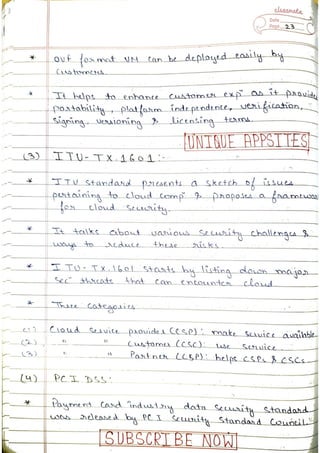 classmate
Date
Page 23
* OVF format VM can be deployed easily by
customers.
* It helps to enhance customer exp as it provides
portability, platform independence, verification,
signing, versioning & licensing terms.
UNIQUE APPSITES
(3) ITU-TX.1601:-
* ITU standard presents a sketch of issues
pertaining to cloud comp & proposes a framework
for cloud security.
* It talks about various security challenges &
ways to reduce these risks
* ITU-TX.1601 starts by listing down major
sec threats that can encounter cloud
* Three categories
(1) Cloud service provider (CSP): make service available
(2) " " customer (CSC): use service
(3) " " Partner (CSP): helps CSPs & CSCs
(4) PCI DSS:
* Payment card industry data security standard
was released by PCI security standard council.
SUBSCRIBE NOW